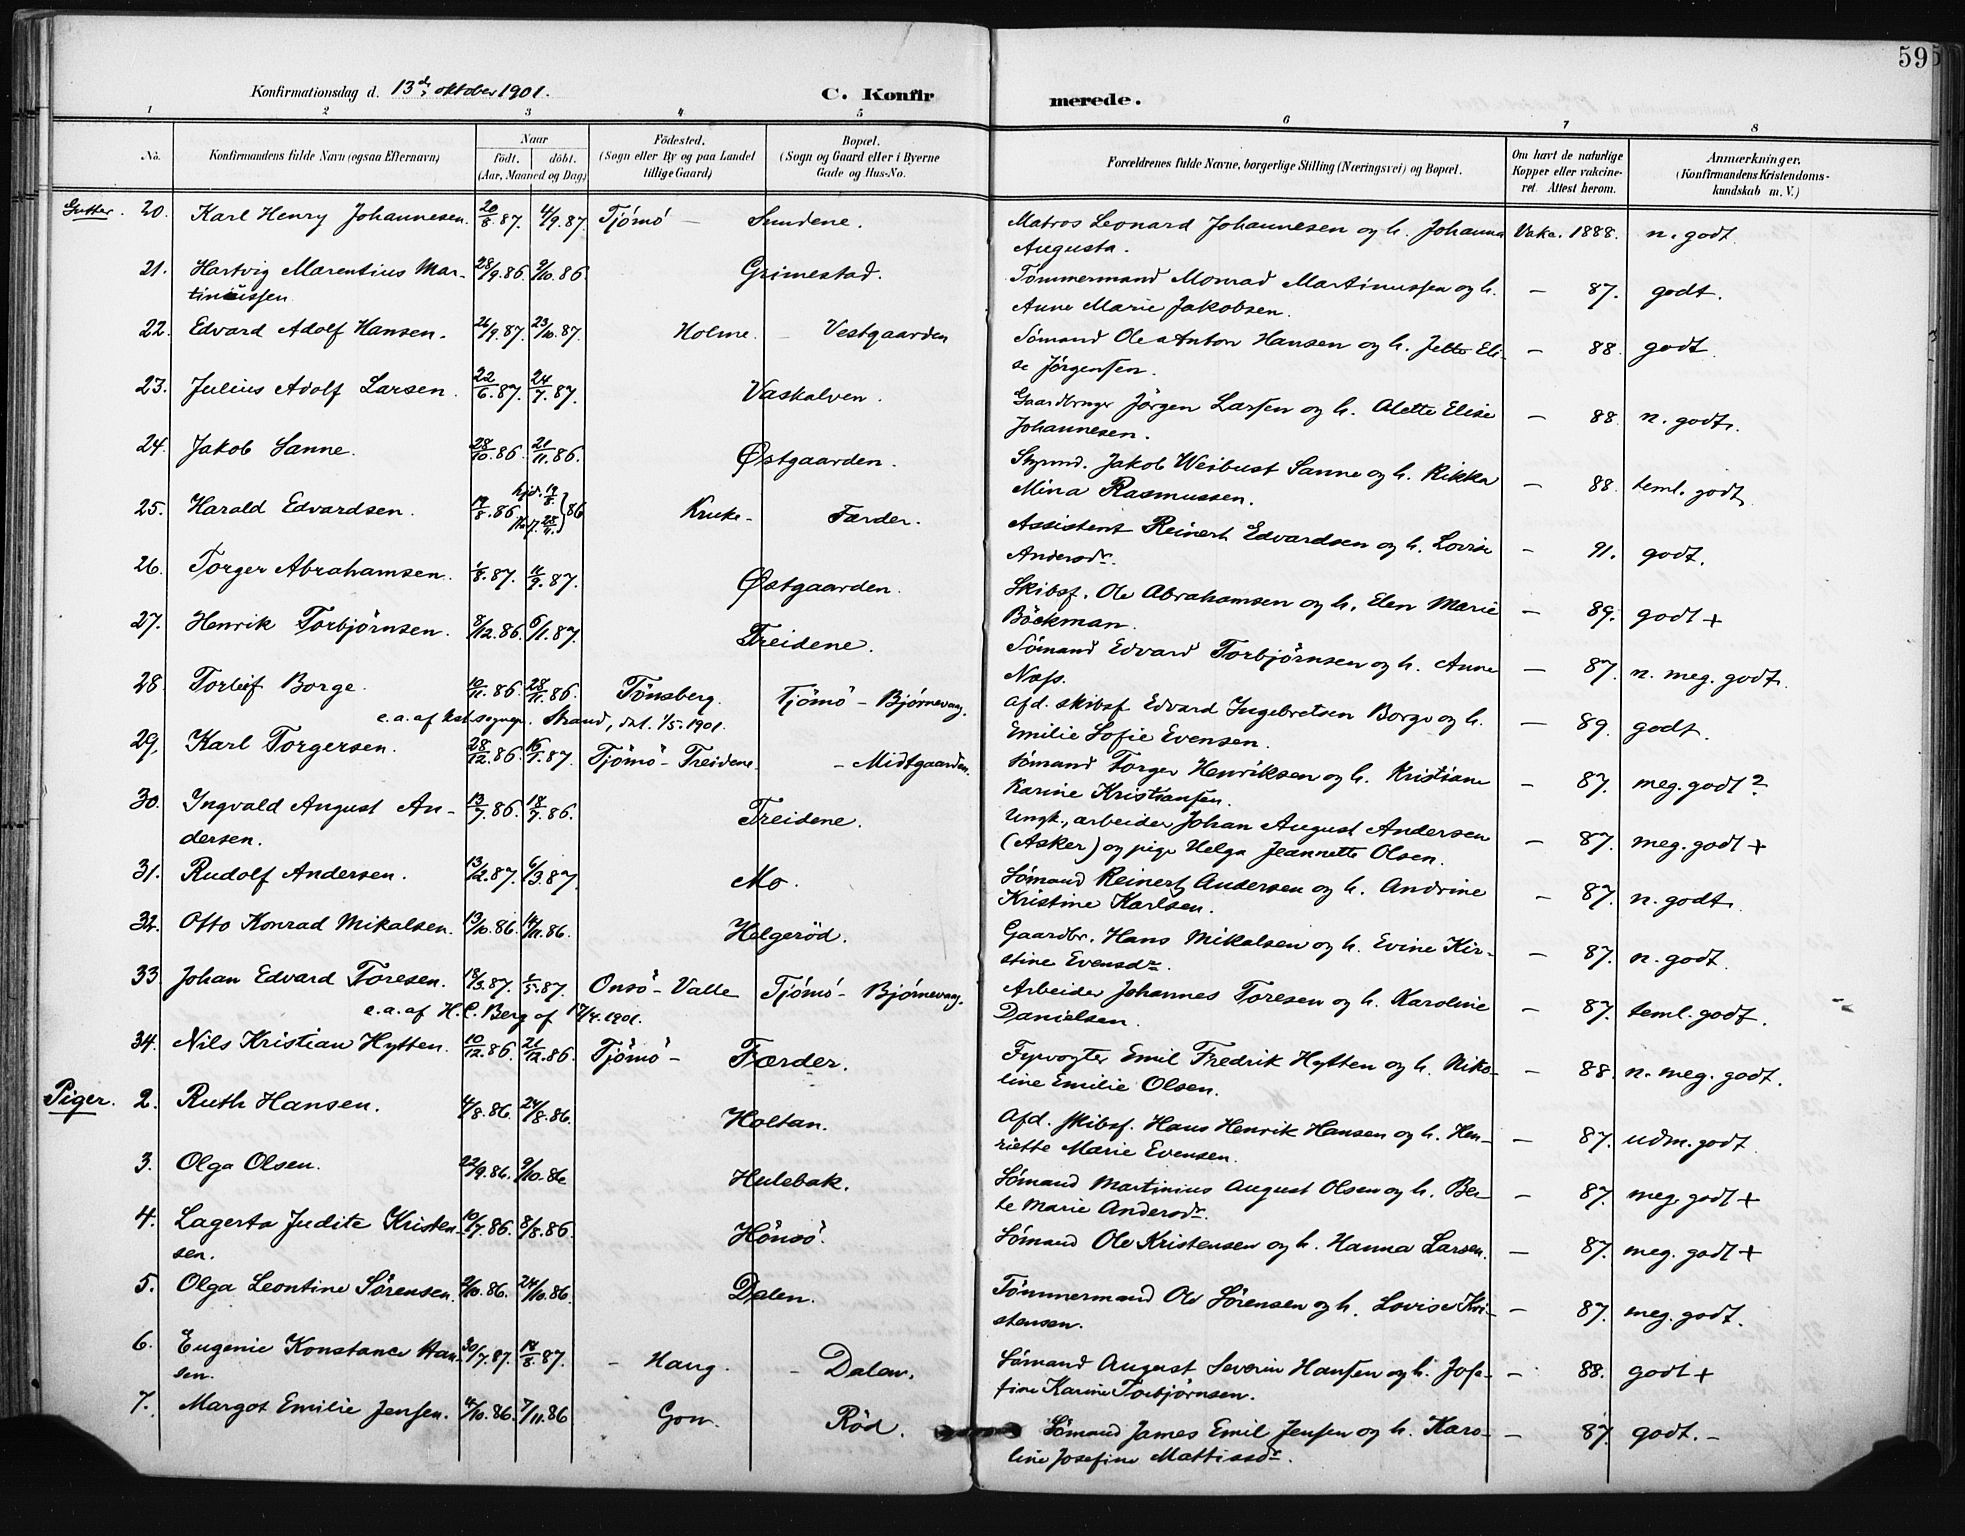 595
Konfirmationsdag d. 13de oktober 1901.
C. Konfir
merede.
1 2 3 4 5 6 7 8
No. Konfirmandens fulde Navn (ogsaa Efternavn)
Naar
födt. döbt.
(Aar, Maaned og Dag)
Födested.
(Sogn eller By og paa Landet
tillige Gaard)
Bopæl.
(Sogn og Gaard eller i Byerne
Gade og Hus-No.
Forældrenes fulde Navne, borgerlige Stilling (Næringsvei) og Bopæl.
Om havt de naturlige
Kopper eller vakcine-
ret. Attest herom.
Anmærkninger.
(Konfirmandens Kristendoms-
kundskab m. V.)
Gutter. 20. Karl Henry Johannesen. 20/8.87. 4/9.87. Tjömö — Sundene. Matros Leonard Johannesen og h. Johanna Vakc. 1888. n. godt
Augusta.
21. Hartvig Marentius Mar- 28/9.86 9/10.86 Grimestad. Tömmermand Monrad Martinussen og h. — 87. godt.
tinussen. Anne Marie Jakobsen.
22. Edvard Adolf Hansen. 26/9.87. 23/10.87. Holme — Vestgaarden Sömand Ole Anton Hansen og h. Jette Eli- — 88. godt.
se Jörgensen.
23. Julius Adolf Larsen. 22/6.87. 24/7.87. Vaskalven. Gaardbruger Jörgen Larsen og h. Alette Elise — 88. n. godt.
Johannesen.
24. Jakob Sanne. 28/10.86. 21/11.86. Østgaarden. Styrmd. Jakob Weibust Sanne og h. Rikka — 88. teml. godt
Mina Rasmussen.
25. Harald Edvardsen. 19/8.86. hjd. 19/8. } 86 Kruke — Færder. Assistent Reinert Edvardsen og h. Lovise — 91. godt.
Andersdr.
26. Torger Abrahamsen. 1/8.87. 11/9.87. Østgaarden. Skibsf. Ole Abrahamsen og h. Elen Marie — 89. godt +
Böckman.
27. Henrik Torbjörnsen. 8/12.86. 6/1.87. Treidene. Sömand Edvard Torbjörnsen og h. Anne — 87. n. meg. godt.
Næss.
28. Torleif Borge. 10/11.86. 28/11.86. Tönsberg. Tjömö — Bjørnevaag. Afd. skibsf. Edvard Ingebretsen Borge og h. — 89. godt.
e.a. af kst. sognepr. Strand, dat. 1/5.1901. Emilie Sofie Evensen.
29. Karl Torgersen. 28/12.86. 16/1.87. Tjömö — Treidene. — Midtgaarden. Sömand Torger Henriksen og h. Kristiane — 87. meg. godt?
Karine Kristiansen.
30. Ingvald August An- 13/7.86. 18/7.86. Treidene. Ungk., arbeider Johan August Andersen — 87. meg. godt +
dersen. (Asker) og pige Helga Jeannette Olsen.
31. Rudolf Andersen. 13/2.87. 6/3.87. Mo. Sömand Reinert Andersen og h. Andrine — 87. n. godt.
Kristine Karlsen.
32. Otto Konrad Mikalsen. 13/10.86. 14/11.86. Helgeröd. Gaardbr. Hans Mikalsen og h. Evine Kir- — 87. n. godt.
stine Evensdr.
33. Johan Edvard Toresen. 18/3.87. 1/5.87. Onsö — Valle Tjömö — Bjørnevaag. Arbeider Johannes Toresen og h. Karoline — 87. teml. godt.
e.a. af H.C. Berg af 17/4.1901. Danielsen.
34. Nils Kristian Hytten. 10/12.86. 21/12.86. Tjömö — Færder. Fyrvogter Emil Fredrik Hytten og h. Niko- — 88. n. meg. godt.
line Emilie Olsen.
Piger. 2. Ruth Hansen. 4/8.86. 24/8.86. Holtan. Afd. skibsf. Hans Henrik Hansen og h. Hen- — 87. udm. godt.
riette Marie Evensen.
3. Olga Olsen. 22/9.86. 9/10.86 Hulebak. Sömand Martinius August Olsen og h. Ber- — 87. meg. godt +
te Marie Andersdr.
4. Lagerta Judite Kristen- 10/7.86. 8/8.86. Hönsö. Sömand Ole Kristensen og h. Hanna Larsen. — 87. meg. godt +
sen.
5. Olga Leontine Sörensen. 2/10.86. 24/10.86. Dalen. Tömmermand Ole Sörensen og h. Lovise Kri- — 87. meg. godt.
stensen.
6. Eugenie Konstance Han- 30/7.87. 14/8.87. — Haug. — Dalen. Sömand August Severin Hansen og h. Jose- — 88. godt +
sen. fine Karine Torbjörnsen.
7. Margot Emilie Jensen. 4/10.86. 7/11.86 Gon. Röd. Sömand James Emil Jensen og h. Karo- — 87. godt. —
line Josefine Mattissdr.